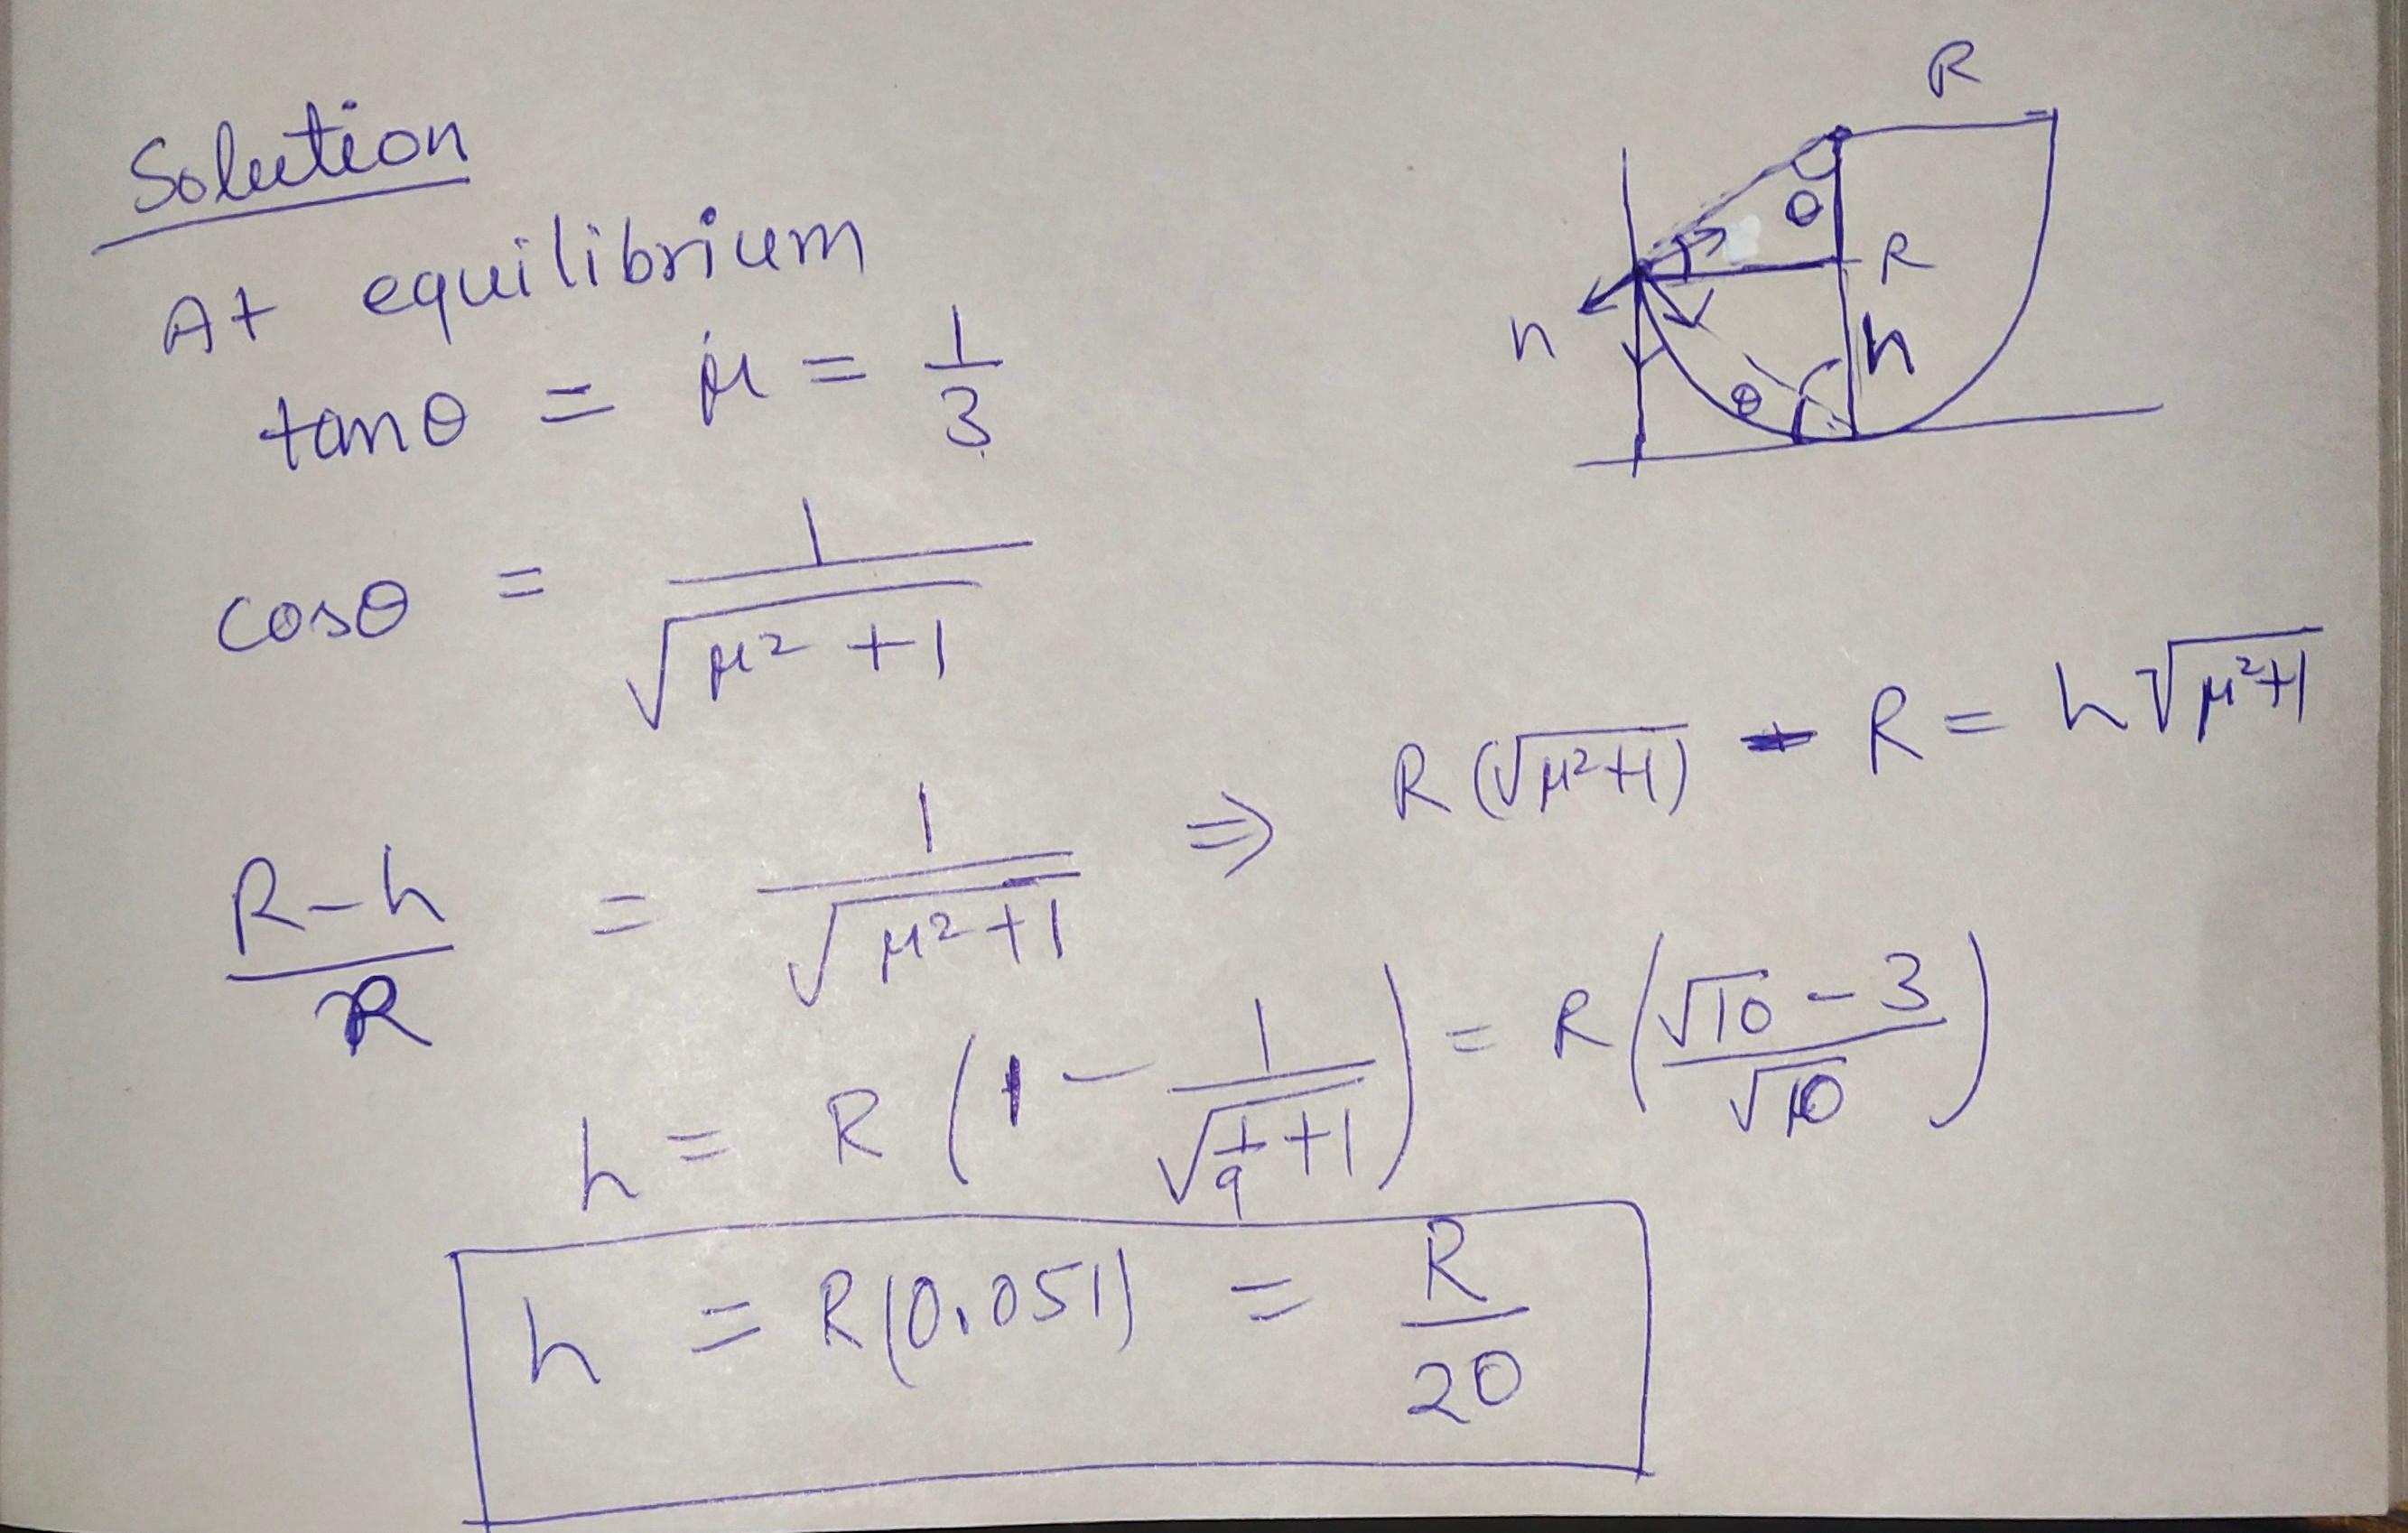 Solution
At equilibrium
tanθ = μ = 1/3
cosθ = 1/√(μ²+1)
(R-h)/R = 1/√(μ²+1) ⇒ R(√(μ²+1)) - R = h√(μ²+1)
h = R(1 - 1/√(1/9+1)) = R((√10-3)/√10)
h = R(0.051) = R/20
R
θ
R
n
h
θ